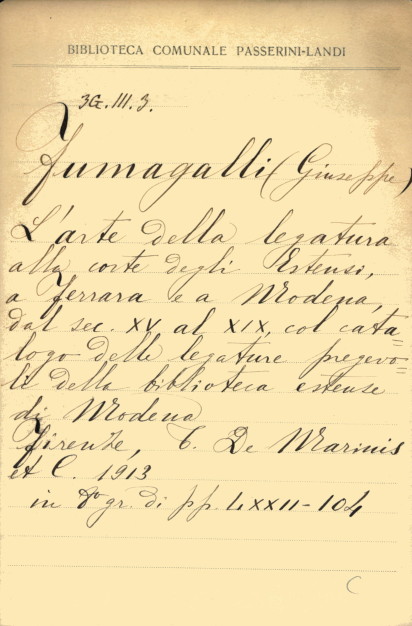 BIBLIOTECA COMUNALE PASSERINI-LANDI
3G.III.3.
Fumagalli (Giuseppe)
L'arte della legatura
alla corte degli Estensi,
a Ferrara e a Modena,
dal sec. XV al XIX, col cata=
logo delle legature pregevo=
li della biblioteca estense
di Modena
Firenze, T. De Marinis
et C. 1913
in 8º gr. di pp. LXXII-104
C